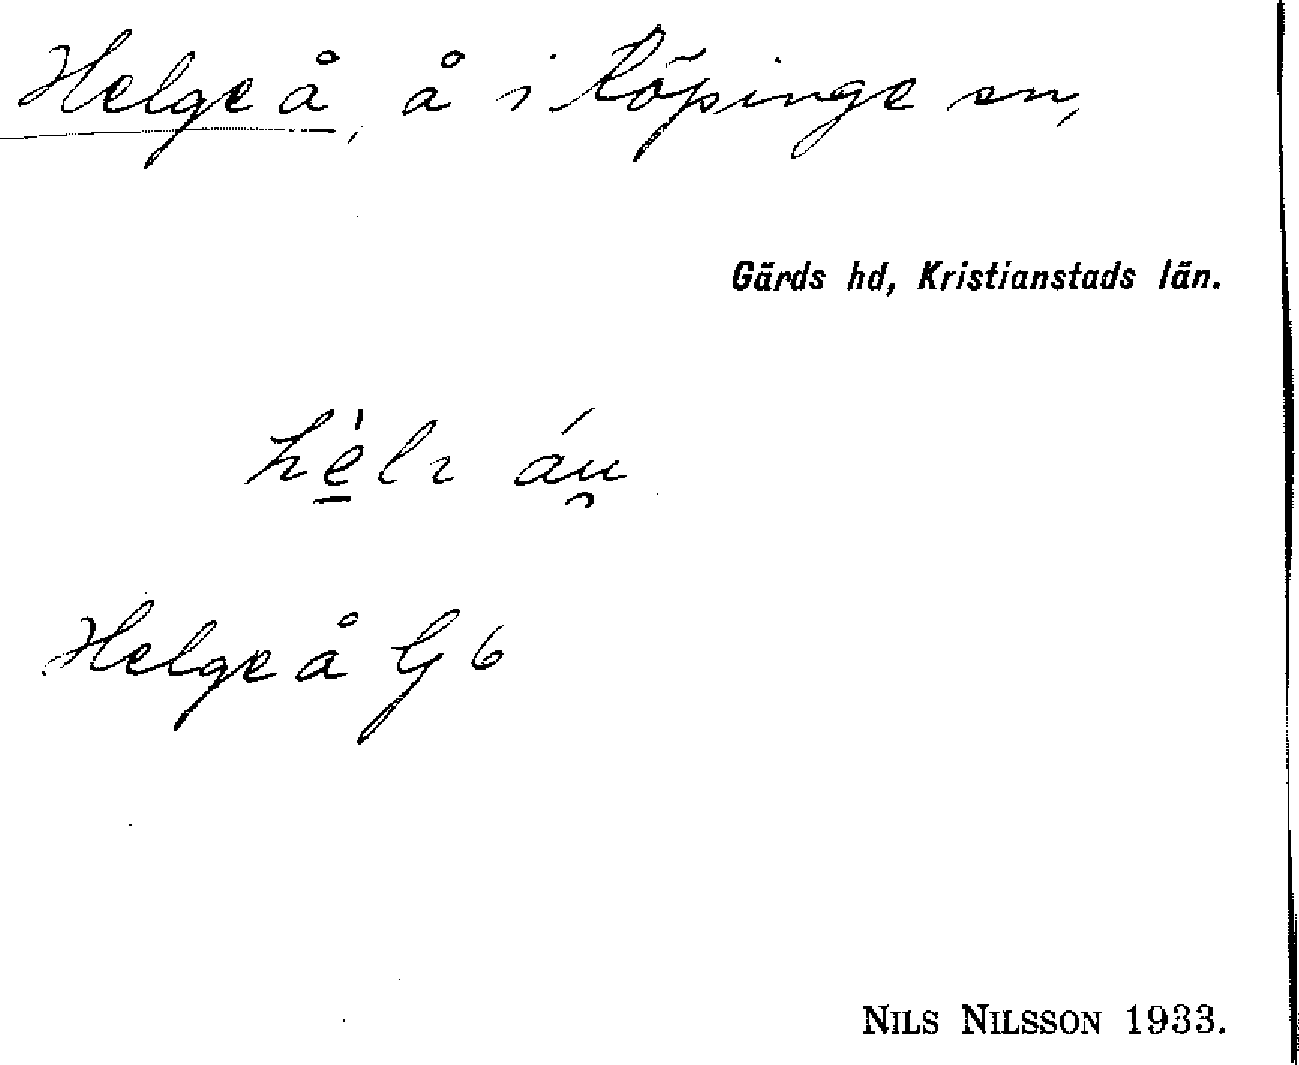 Helge å, å i Köpinge sn,
Gärds hd, Kristianstads län.
Helge å G 6
NILS NILSSON 1933.